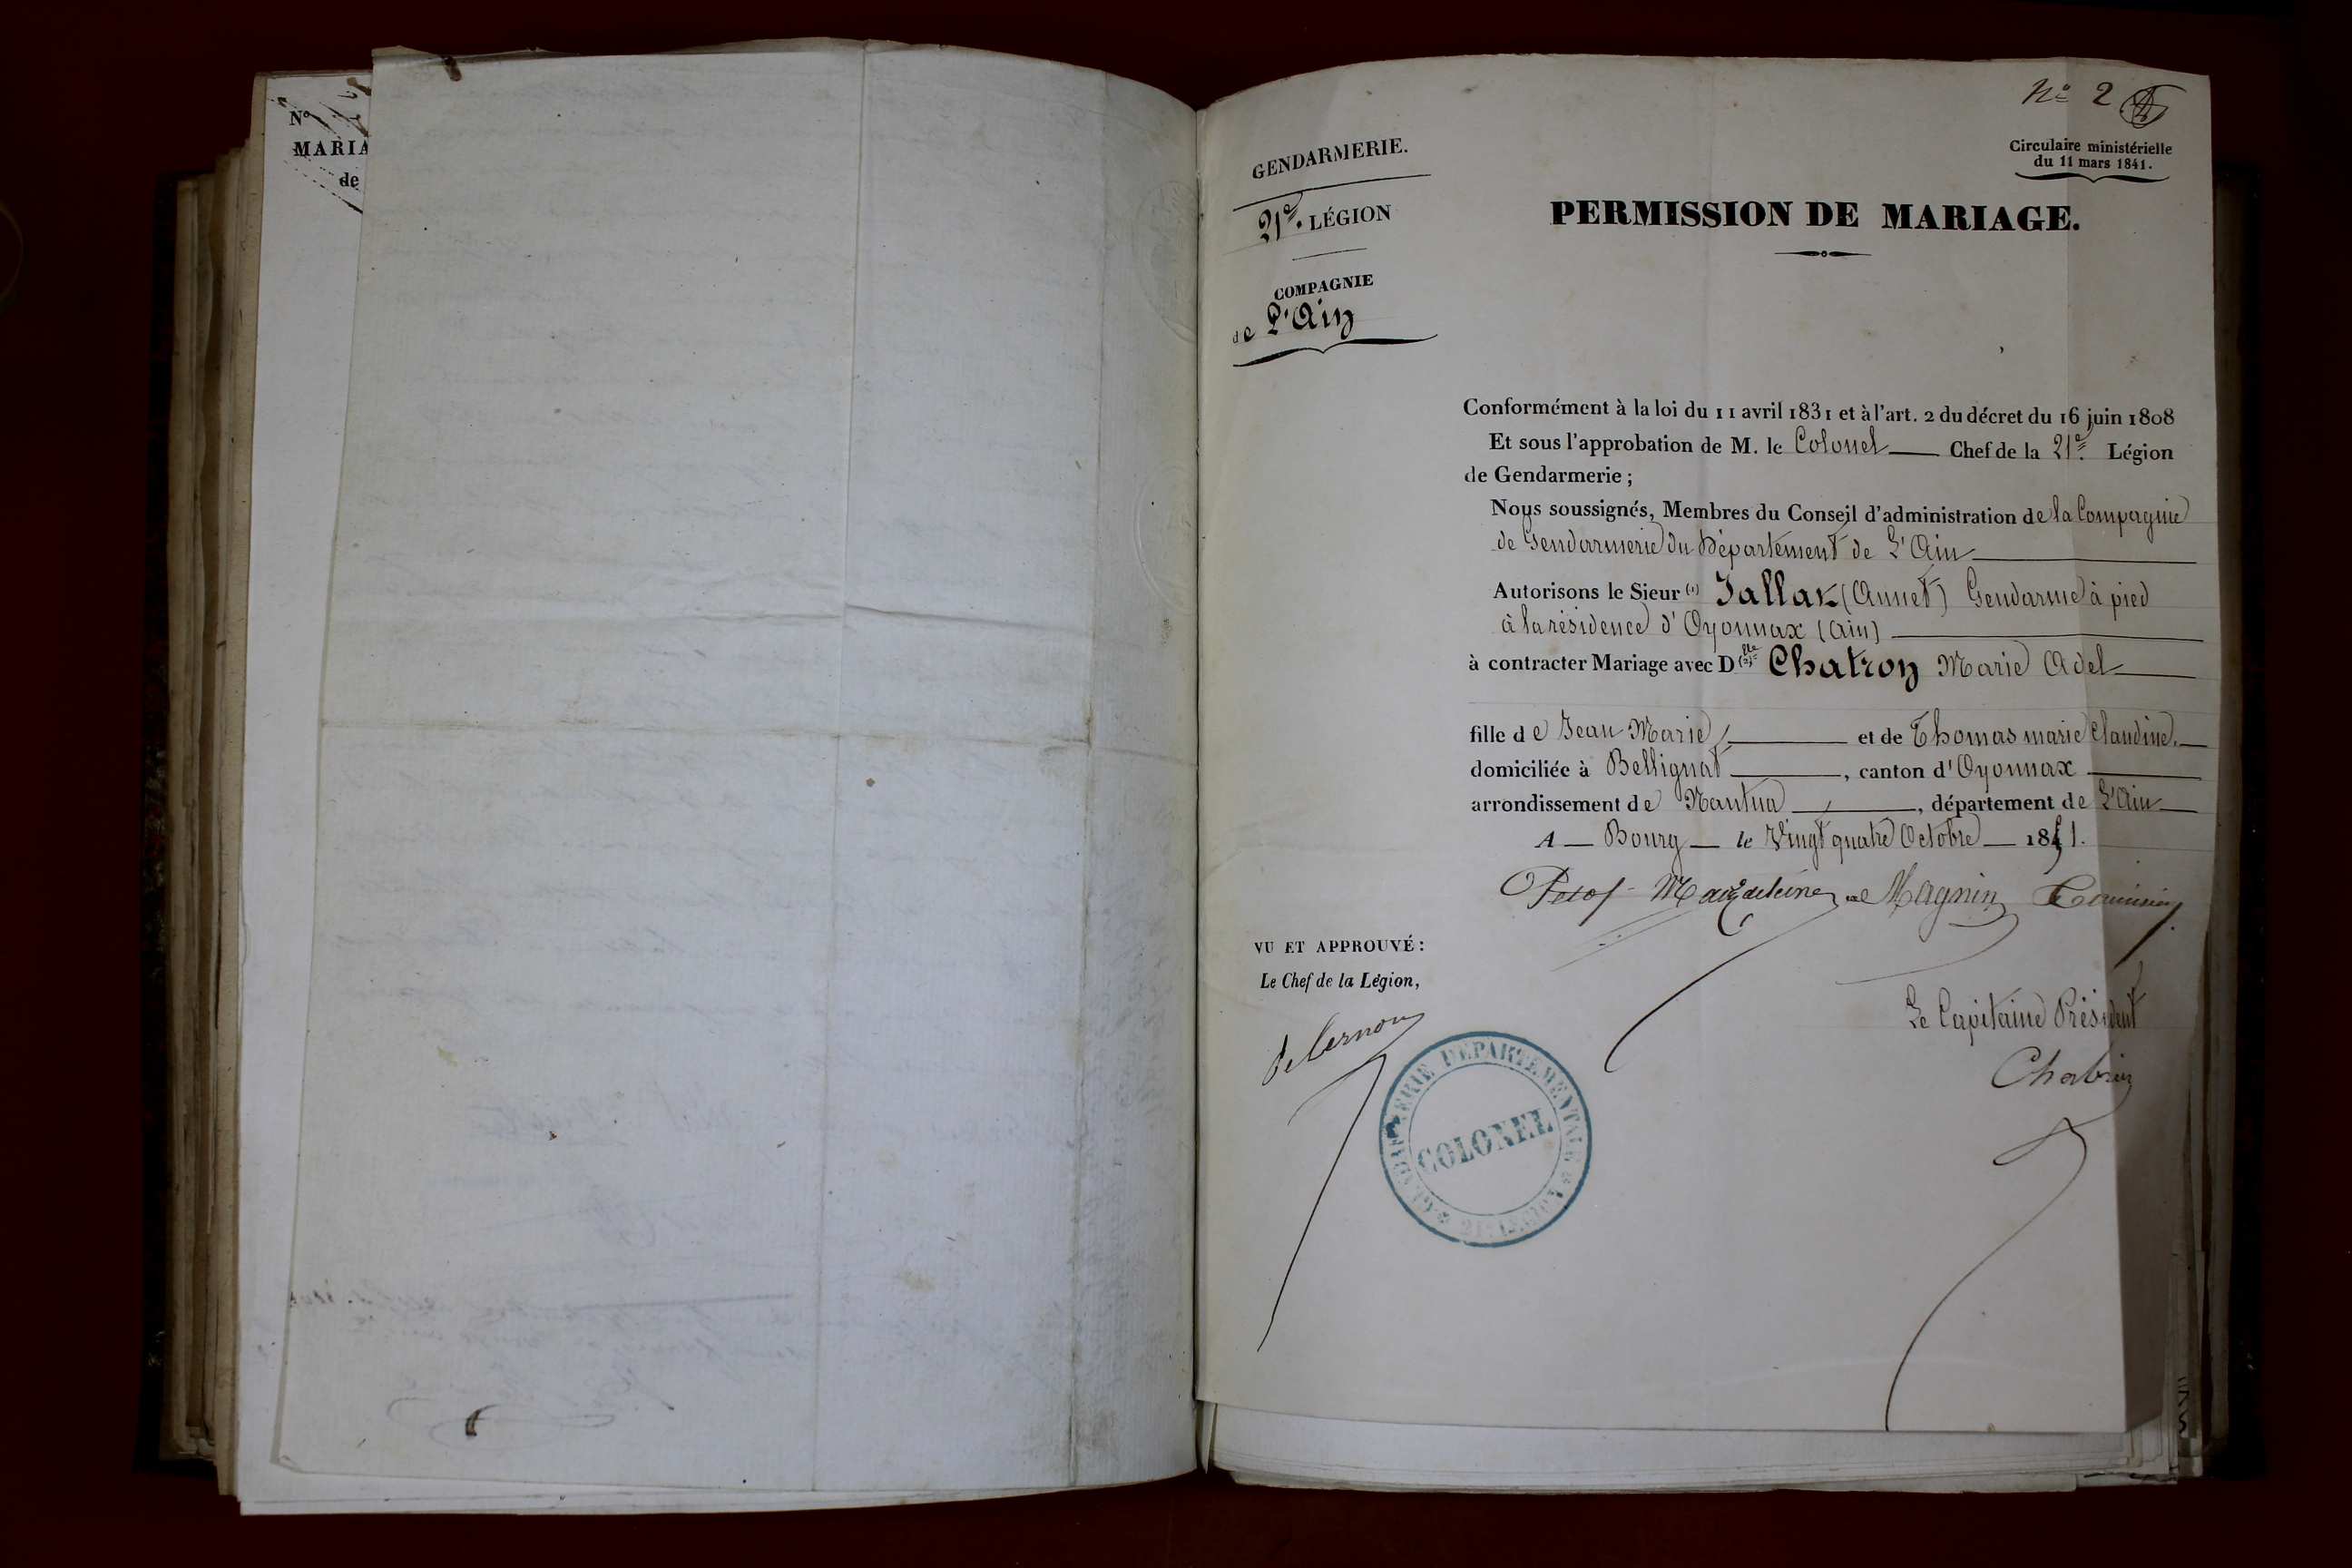 N°
MARIA
de
N° 2
Circulaire ministérielle
du 11 mars 1841.
GENDARMERIE.
21e. LÉGION
COMPAGNIE
de L'Ain
PERMISSION DE MARIAGE.
Conformément à la loi du 11 avril 1831 et à l'art. 2 du décret du 16 juin 1808
Et sous l'approbation de M. le Colonel Chef de la 21e. Légion
de Gendarmerie ;
Nous soussignés, Membres du Conseil d'administration de la Compagnie
de Gendarmerie du Département de L'Ain
Autorisons le Sieur (1) Jallak (Annet) Gendarme à pied
à la résidence d'Oyonnax (Ain)
à contracter Mariage avec Dlle (2) Chatron Marie Adel
fille de Jean Marie et de Thomas marie Claudine.
domiciliée à Bellignat, canton d'Oyonnax
arrondissement de Nantua, département de L'Ain
A — Bourg — le Vingt quatre Octobre — 1851.
Magnin
VU ET APPROUVÉ :
Le Chef de la Légion,
Le Capitaine Président
GENDARMERIE DÉPARTEMENTALE
COLONEL
21e LÉGION